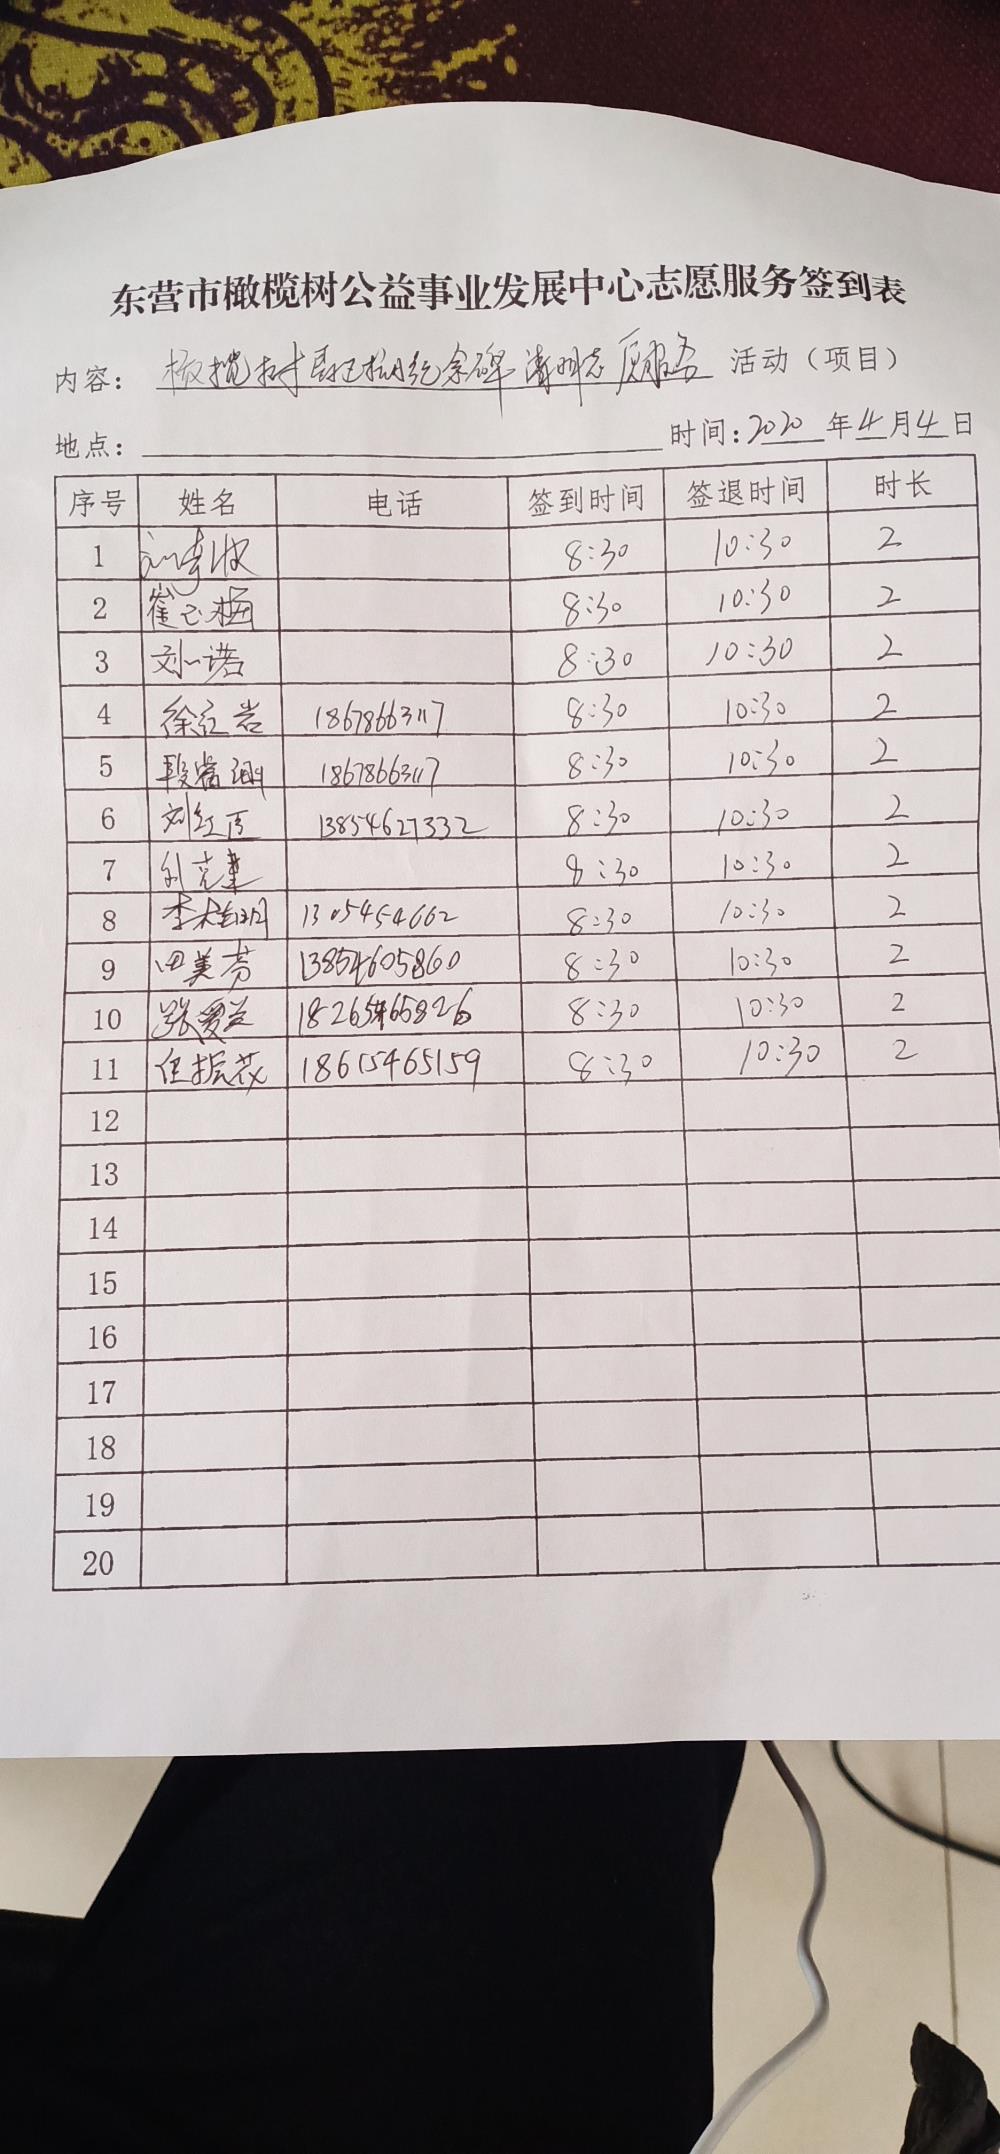 东营市橄榄树公益事业发展中心志愿服务签到表
内容： 橄榄树 纪念碑清明志愿服务 活动（项目）
地点： 时间：2020年4月4日
序号 姓名 电话 签到时间 签退时间 时长
1 8:30 10:30 2
2 崔玉梅 8:30 10:30 2
3 刘一诺 8:30 10:30 2
4 徐红岩 18678663117 8:30 10:30 2
5 段 18678663117 8:30 10:30 2
6 刘红 13854627332 8:30 10:30 2
7 8:30 10:30 2
8 李 1305454662 8:30 10:30 2
9 田美芳 13854605860 8:30 10:30 2
10 张爱兰 8:30 10:30 2
11 任振花 18615465159 8:30 10:30 2
12
13
14
15
16
17
18
19
20